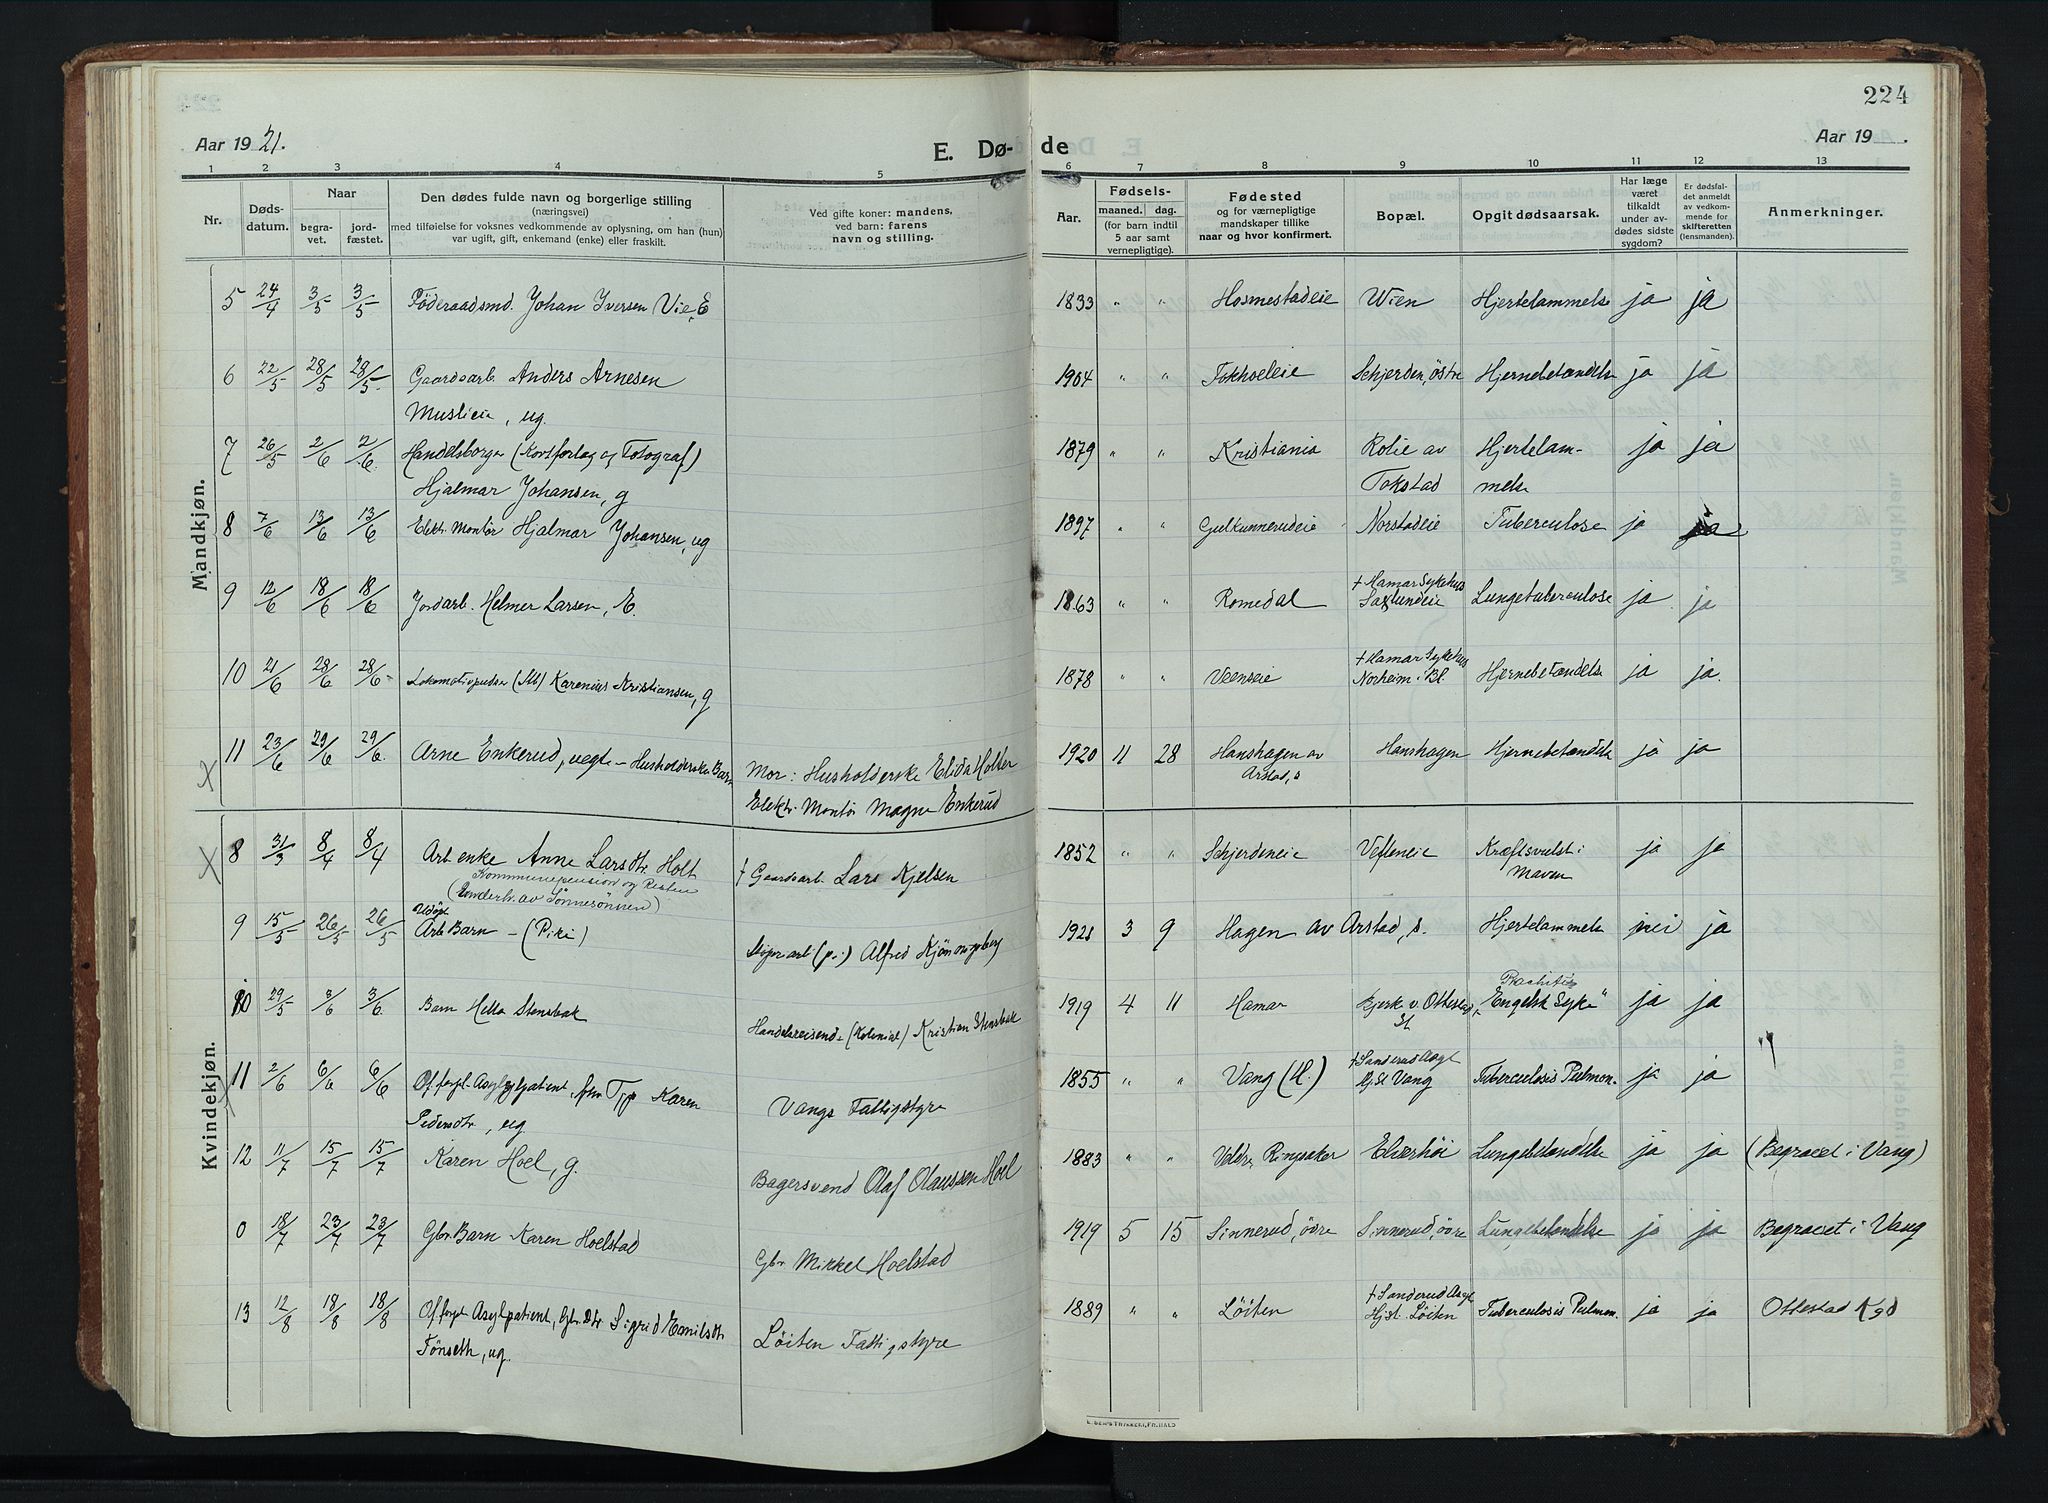 224
Aar 1921.
E. Dø-
de
Aar 19 .
1 2 3 4 5 6 7 8 9 10 11 12 13
Nr.
Døds-
datum.
Naar
begra-
vet.
jord-
fæstet.
Den dødes fulde navn og borgerlige stilling
(næringsvei)
med tilføielse for voksnes vedkommende av oplysning, om han (hun)
var ugift, gift, enkemand (enke) eller fraskilt.
Ved gifte koner: mandens,
ved barn: farens
navn og stilling.
Aar.
Fødsels-
maaned. dag.
(for barn indtil
5 aar samt
vernepligtige).
Fødested
og for værnepligtige
mandskaper tillike
naar og hvor konfirmert.
Bopæl.
Opgit dødsaarsak.
Har læge
været
tilkaldt
under av-
dødes sidste
sygdom?
Er dødsfal-
det anmeldt
av vedkom-
mende for
skifteretten
(lensmanden).
Anmerkninger.
Mandkjøn.
5 24/4 3/5 3/5 Föderaadsmd. Johan Iversen Vie, E 1833 " " Hosmestadeie Wien Hjertelammelse ja ja
6 22/5 28/5 28/5 Gaardsarb. Anders Arnesen 1904 " " Tokholeie Schjerden, östre Hjernebetændelse ja ja
Muslieie, ug.
7 26/5 2/6 2/6 Handelsborger (Kortforlag og Fotograf) 1879 " " Kristiania Rolie av Hjertelam- ja ja
Hjalmar Johansen, g Tokstad melse
8 7/6 13/6 13/6 Elektr. Montör Hjalmar Johansen, ug 1897 " " Gulkunnerudeie Norstadeie Tuberculose ja ja
9 12/6 18/6 18/6 Jordarb. Helmer Larsen, E. 1863 " " Romedal † Hamar Sykehus Saxlundeie Lungetuberculose ja ja
10 21/6 28/6 28/6 Lokomotivpudser (Stb) Karenius Kristiansen, g 1878 " " Veenseie † Hamar Sykehus Norheim i Bl. Hjernebetændelse ja ja.
11 23/6 29/6 29/6 Arne Enkerud, uegte - Husholderske Barn Mor: Husholderske Elida Holter 1920 11 28 Hanshagen av Hanshagen Hjernebetændelse ja ja
Elektr. Montör Magne Enkerud Arstad, s
Kvindekjøn.
8 31/3 8/4 8/4 Arb enke Anne Larsdtr. Holt † Gaardsarb. Lars Kjelsen 1852 " " Schjerdeneie Vefleneie Kræftsvulst i ja ja
Kommunepension og Resten Maven
(Underh. av Sönnesönnen)
9 15/5 26/5 26/5 Udöpt Arb Barn - (Pike) Alfred Kjönnigsberg 1921 3 9 Hagen av Arstad, s. Hjertelammelse nei ja
10 29/5 3/6 3/6 Barn Hella Stensbak Handelsreisende (Kolonial) Kristian Stensbak 1919 4 11 Hamar Bjerke v. Ottestad St Rachitis "Engelsk Syke" ja ja
11 2/6 6/6 6/6 Of. forpl. Asylpatient, fhv. Tjp Karen Vangs Fattigstyre 1855 " " Vang (H.) † Sanderud Asyl Hj. St Vang Tuberculosis Pulmon. ja ja
Pedersdtr., ug.
12 11/7 15/7 15/7 Karen Hoel, g. Bagersvend Olaf Olaussen Hoel 1883 " " Veldre, Ringsaker Elverhöi Lungebetændelse ja ja (Begravet i Vang)
0 18/7 23/7 23/7 Gbr. Barn Karen Hoelstad Gbr. Mikkel Hoelstad 1919 5 15 Sinnerud, övre Sinnerud, övre Lungebetændelse ja ja Begravet i Vang
13 12/8 18/8 18/8 Of forpl Asylpatient, Gbr. Dtr Sigrid Emilsdtr Löiten Fattigstyre 1889 " " Löiten † Sanderud Asyl Hj.St. Löiten Tuberculosis Pulmon. ja ja Ottestad Kgd
Fönseth, ug.